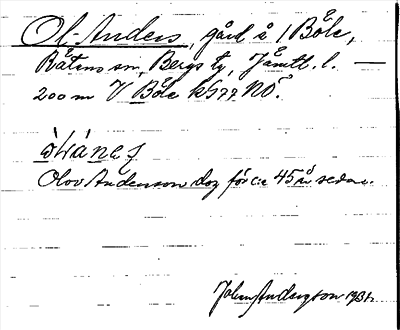 Ol-Anders, gård å 1 Böle,
Råtans sn, Bergs tg, Jämtl. l. —
200 m V Böle k577 NO.
Olov Andersson dog för c:a 45 år sedan.
John Andersson 1931.